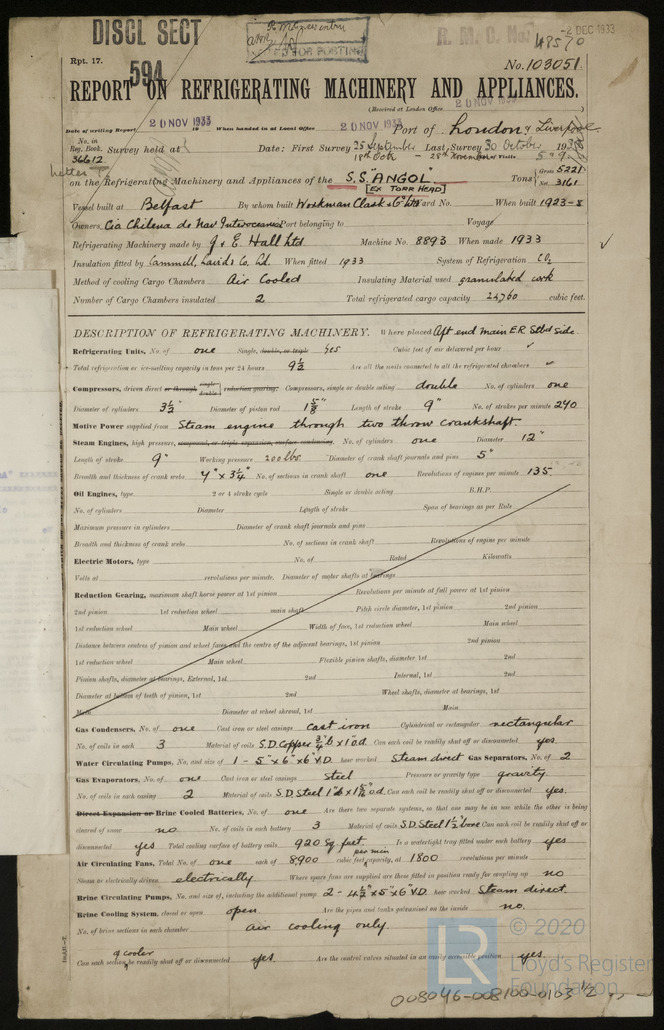 DISCL SECT
594
R. M. C. No.
48570
-2 DEC 1933
Rpt. 17.
No. 103051.
REPORT ON REFRIGERATING MACHINERY AND APPLIANCES.
(Received at London Office
Date of writing Report 20 NOV 1933 19 When handed in at Local Office 20 NOV 1933 Port of London & Liverpool
No. in Reg. Book. 36612 Survey held at Date: First Survey 25 September Last Survey 30 October 193
18th Octr - 28th November
on the Refrigerating Machinery and Appliances of the S.S "ANGOL" Tons Gross 5221
[EX TORR HEAD] Net 3161
Vessel built at Belfast By whom built Workman Clark & Co Ltd Yard No. When built 1923-8
Owners Cia Chilena de Nav Interoceanica Port belonging to Voyage
Refrigerating Machinery made by J & E Hall Ltd Machine No. 8893 When made 1933
Insulation fitted by Cammell, Lairds Co. Ld. When fitted 1933 System of Refrigeration CO2
Method of cooling Cargo Chambers Air Cooled Insulating Material used granulated cork
Number of Cargo Chambers insulated 2 Total refrigerated cargo capacity 22,760 cubic feet.
DESCRIPTION OF REFRIGERATING MACHINERY. Where placed Aft end main ER Stbd side.
Refrigerating Units, No. of one Single, double, or triple Yes Cubic feet of air delivered per hour
Total refrigeration or ice-melting capacity in tons per 24 hours 9½ Are all the units connected to all the refrigerated chambers
Compressors, driven direct or through single double reduction gearing. Compressors, single or double acting double No. of cylinders one
Diameter of cylinders 3½" Diameter of piston rod 1⅝" Length of stroke 9" No. of strokes per minute 270
Motive Power supplied from Steam engine through two throw crankshaft.
Steam Engines, high pressure, compound, or triple expansion, surface condensing. No. of cylinders one Diameter 12"
Length of stroke 9" Working pressure 200 lbs. Diameter of crank shaft journals and pins 5"
Breadth and thickness of crank webs 7" x 3¼" No. of sections in crank shaft one Revolutions of engines per minute 135
Oil Engines, type 2 or 4 stroke cycle Single or double acting B.H.P.
No. of cylinders Diameter Length of stroke Span of bearings as per Rule
Maximum pressure in cylinders Diameter of crank shaft journals and pins
Breadth and thickness of crank webs No. of sections in crank shaft Revolutions of engine per minute
Electric Motors, type No. of Rated Kilowatts
Volts at revolutions per minute. Diameter of motor shafts at bearings
Reduction Gearing, maximum shaft horse power at 1st pinion Revolutions per minute at full power at 1st pinion
2nd pinion 1st reduction wheel main shaft Pitch circle diameter, 1st pinion 2nd pinion
1st reduction wheel Main wheel Width of face, 1st reduction wheel Main wheel
Distance between centres of pinion and wheel faces and the centre of the adjacent bearings, 1st pinion 2nd pinion
1st reduction wheel Main wheel Flexible pinion shafts, diameter 1st 2nd
Pinion shafts, diameter at bearings, External, 1st 2nd Internal, 1st 2nd
Diameter at bottom of teeth of pinion, 1st 2nd Wheel shafts, diameter at bearings, 1st
Main Diameter at wheel shroud, 1st Main
Gas Condensers, No. of one Cast iron or steel casings cast iron Cylindrical or rectangular rectangular
No. of coils in each 3 Material of coils S.D. Copper ¾"b x 1"o.d. Can each coil be readily shut off or disconnected yes
Water Circulating Pumps, No. and size of 1 - 5" x 6" x 6" V.D. how worked Steam direct Gas Separators, No. of 2
Gas Evaporators, No. of one Cast iron or steel casings steel Pressure or gravity type gravity.
No. of coils in each casing 2 Material of coils S.D. Steel Can each coil be readily shut off or disconnected yes.
Direct Expansion or Brine Cooled Batteries, No. of one Are there two separate systems, so that one may be in use while the other is being
cleared of snow no No. of coils in each battery 3 Material of coils S.D. Steel 1½" bore Can each coil be readily shut off or
disconnected yes Total cooling surface of battery coils 920 Sq. feet Is a watertight tray fitted under each battery yes
Air Circulating Fans, Total No. of one each of 8900 cubic feet per min capacity, at 1800 revolutions per minute
Steam or electrically driven electrically Where spare fans are supplied are these fitted in position ready for coupling up no
Brine Circulating Pumps, No. and size of, including the additional pump 2 - 4½" x 5" x 6" V.D. how worked Steam direct.
Brine Cooling System, closed or open open Are the pipes and tanks galvanised on the inside no.
No. of brine sections in each chamber air cooling only.
Can each section of cooler be readily shut off or disconnected yes. Are the control valves situated in an easily accessible position yes
© 2020
Lloyd's Register
Foundation
008096-008100-0103 ½